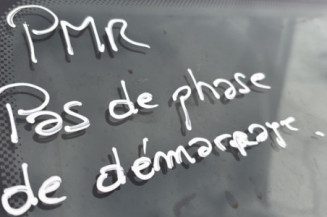 PMR
Pas de phase
de démarrage.